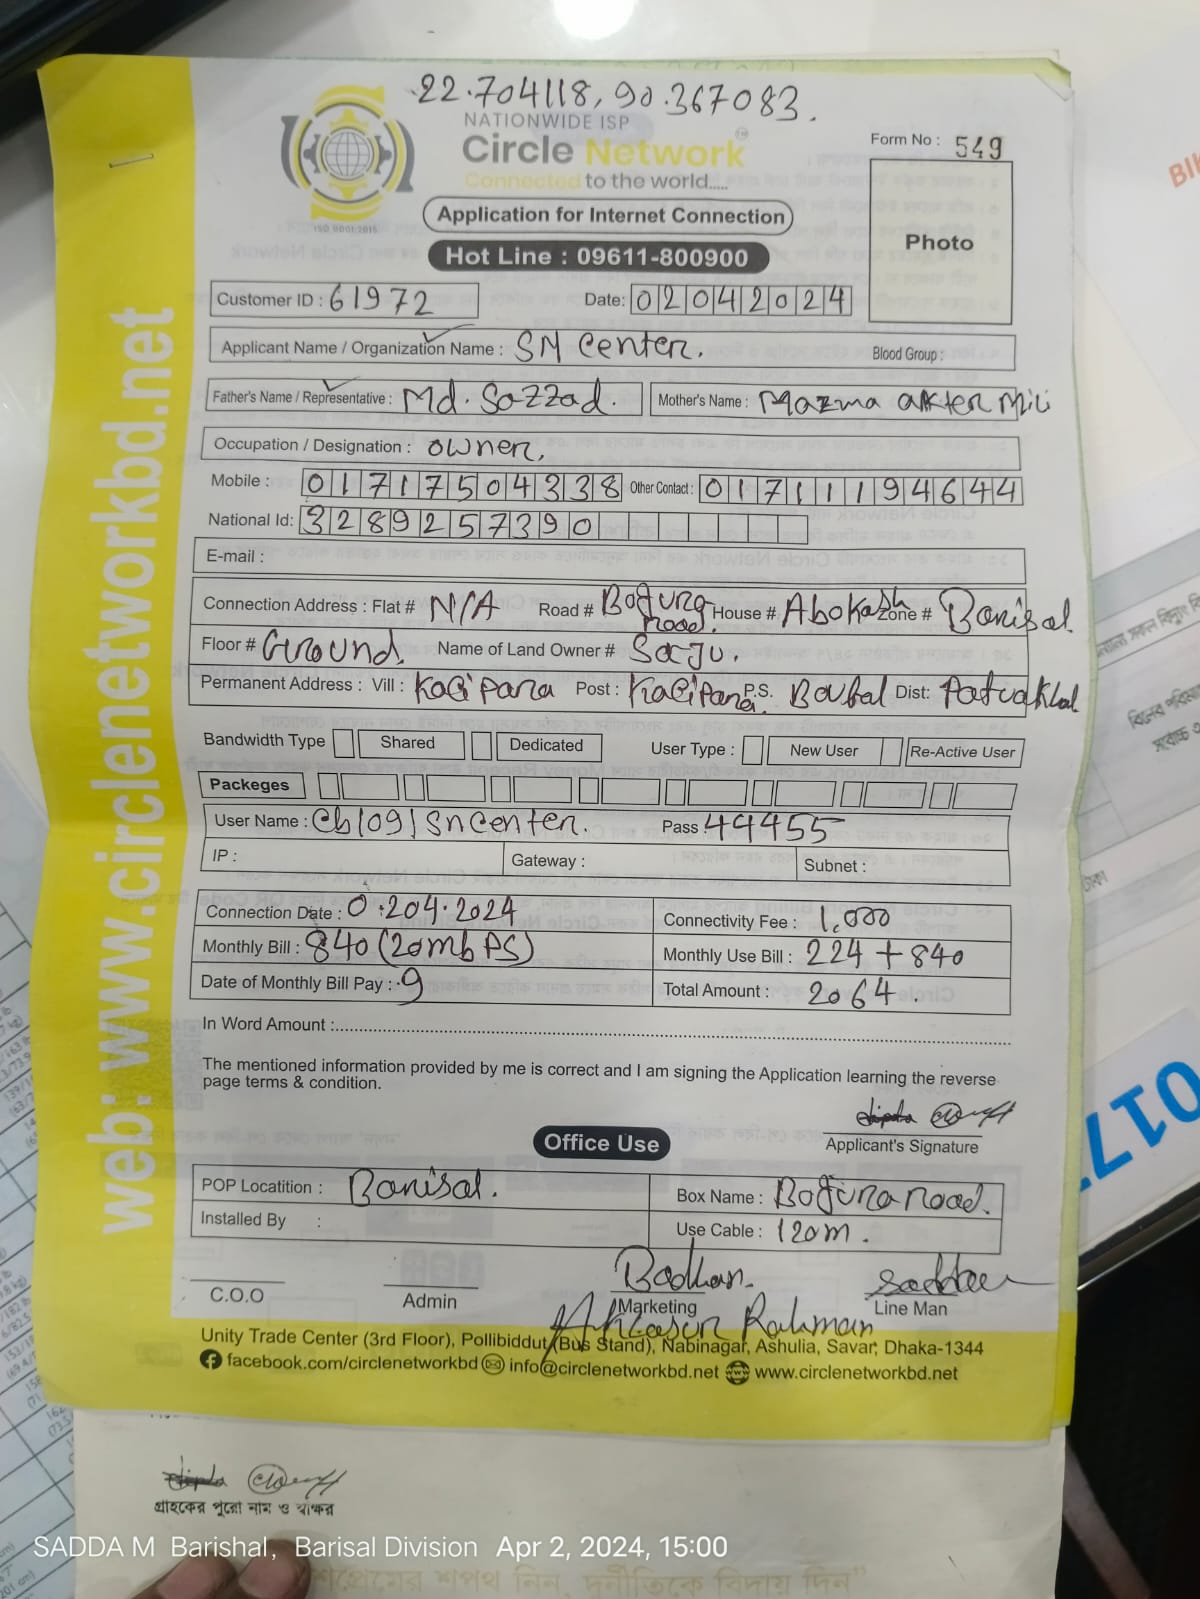 22.704118, 90.367083.
NATIONWIDE ISP
Circle Network
Connected to the world.....
ISO 9001:2015
Form No : 549
Photo
Application for Internet Connection
Hot Line : 09611-800900
Customer ID : 61972
Date: 02042024
Applicant Name / Organization Name : SM Center.
Blood Group :
Father's Name / Representative : Md. Sazzad.
Mother's Name : Mazma akter Mili
Occupation / Designation : owner.
Mobile : 01717504338 Other Contact : 01711194644
National Id: 3289257390
E-mail :
Connection Address : Flat # N/A Road # Bogura Road. House # Abokash Zone # Barisal
Floor # Ground. Name of Land Owner # Saju.
Permanent Address : Vill : Kalipara Post : Kalipara. P.S. Baufal Dist: Patuakhal
Bandwidth Type Shared Dedicated User Type : New User Re-Active User
Packeges
User Name : Cb|09|SnCenter. Pass : 44455
IP : Gateway : Subnet :
Connection Date : 0.204.2024 Connectivity Fee : 1,000
Monthly Bill : 840 (20mbPS) Monthly Use Bill : 224 + 840
Date of Monthly Bill Pay : 9 Total Amount : 2064.
In Word Amount :
The mentioned information provided by me is correct and I am signing the Application learning the reverse
page terms & condition.
Applicant's Signature
Office Use
POP Locatition : Barisal. Box Name : Bogura Road.
Installed By : Use Cable : 120m.
Badhan. Saddam
C.O.O Admin Marketing Line Man
Rahman
Unity Trade Center (3rd Floor), Pollibiddut (Bus Stand), Nabinagar, Ashulia, Savar, Dhaka-1344
facebook.com/circlenetworkbd info@circlenetworkbd.net www.circlenetworkbd.net
web: www.circlenetworkbd.net
গ্রাহকের পুরো নাম ও স্বাক্ষর
SADDA M Barishal, Barisal Division Apr 2, 2024, 15:00
শপথ নিন, দুর্নীতিকে বিদায় দিন"
017